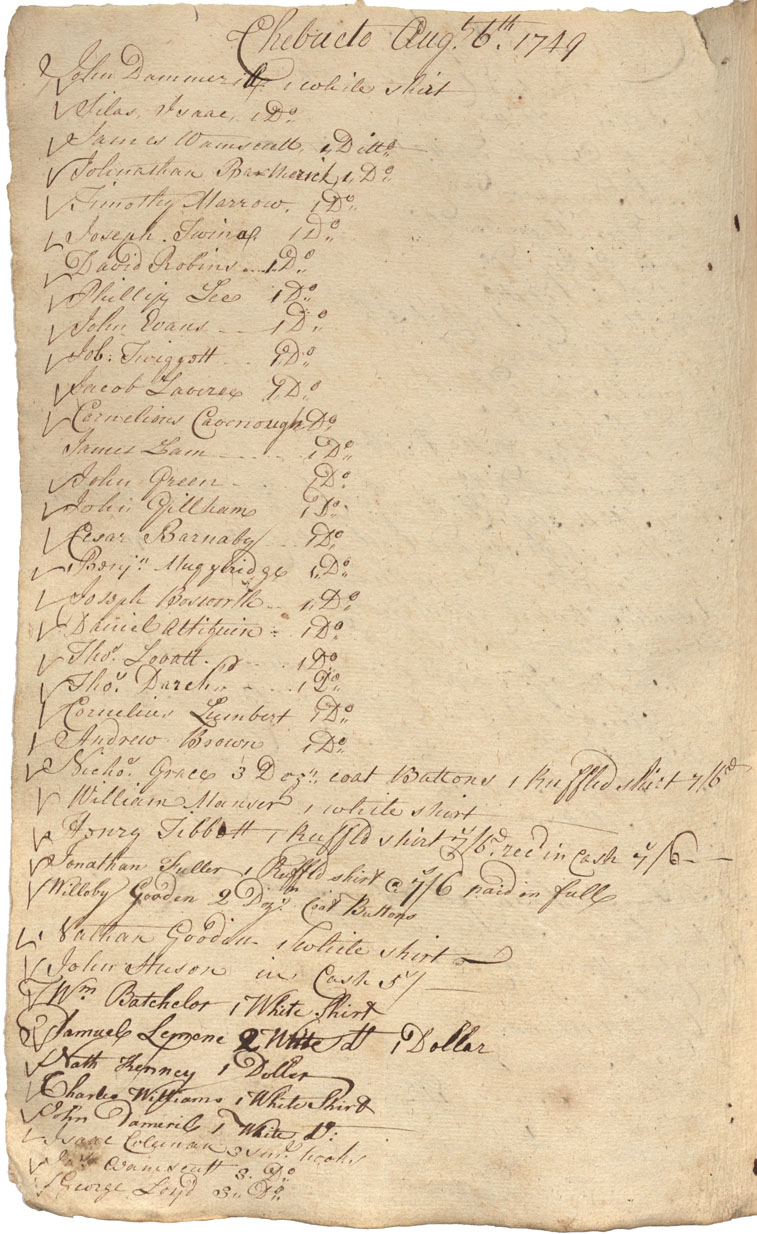 Chebucto Augst. 6th. 1749
John Dammerill 1 white shirt
Silas Isaac, 1 Do
James Wamscutt, 1 Ditto
Johnathan 1 Do
Timothy Marrow, 1 Do
Joseph 1 Do
David Robins 1 Do
Phillip Lee 1 Do
John Evans 1 Do
Job: Twiggott 1 Do
Jacob 1 Do
Cornelious Cavenough 1 Do
James Lam 1 Do
John Green 1 Do
John Gillham 1 Do
Cesar Barnaby 1 Do
Benjn Muggridge 1 Do
Joseph Bosworth 1 Do
Daniel Attiquin 1 Do
Thos. Lovatt 1 Do
Thos. Darch 1 Do
Cornelius Lumbert 1 Do
Andrew Brown 1 Do
Nichos. Grace 3 Dozn coat Buttons 1 Ruffled shirt 7/6d
William Manser 1 white shirt
Henry Tibbott 1 Ruffld shirt 7/6d recd in Cash 7/6
Jonathan Fuller 1 Ruffld shirt @ 7/6 paid in full
Willoby Gooden 2 Dozn Coat Buttons
Nathan Gooden 1 White shirt
John Huson in Cash 5/
Wm Batchelor 1 White Shirt
Samuel Lemene 2 White do 1 Dollar
Nath Kenney 1 Doller
Charles Williams 1 White Shirt
John Dameril 1 White Do:
Isaac Coleman 3 hooks
Wamscutt 3. Do
George Loyd 3.. Do